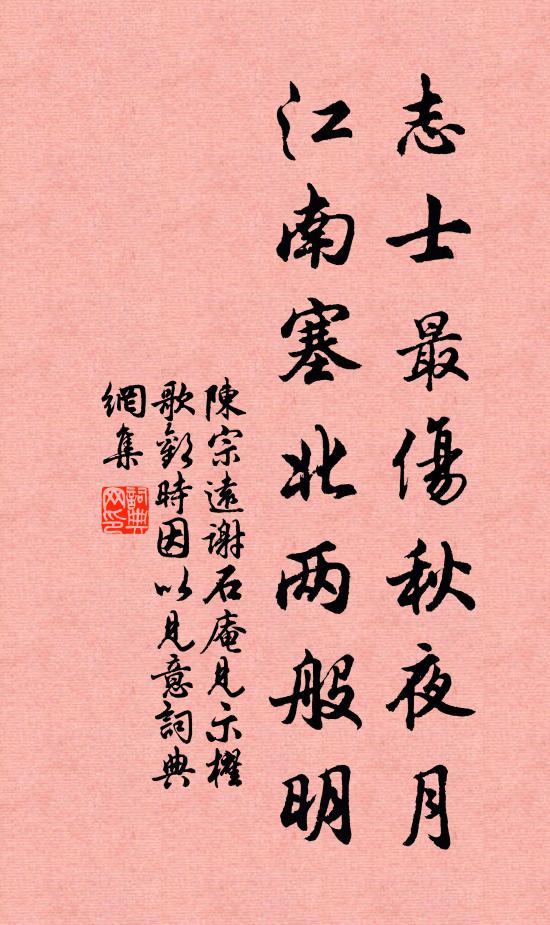 志士最傷秋夜月
江南塞北两般明
陳宗遠謝石庵見示櫂
歌歎時因以見意詞典
網集
詞典
网印